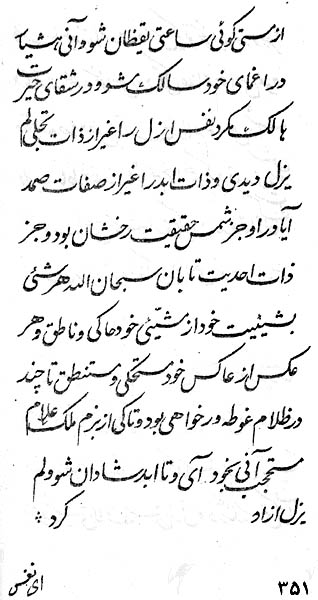 از مستی کوئی ساعتی یقظان شو و آنی هشیار
در اغمای خود سالک مشو و در رشقای حیرت
هالک مگرد نفس ازل را غیر از ذات تجلی لم
یزل دیدی و ذات ابد را غیر از صفات صمد
آیا در او جز شمس حقیقت رخشان بود و جز
ذات احدیت تابان سبحان الله هر شئی
بشیئیت خود از مشیّئی خود حاکی و ناطق و هر
عکس از عاکس خود مستحکی و مستنطق تا چند
در ظلام غوطه ور خواهی بود و تا کی از بزم ملک علام
محتجب آنی بخود آی و تا ابد شادان شو و لم
یزل ازاد گرد
۳۵۱
ای نفس